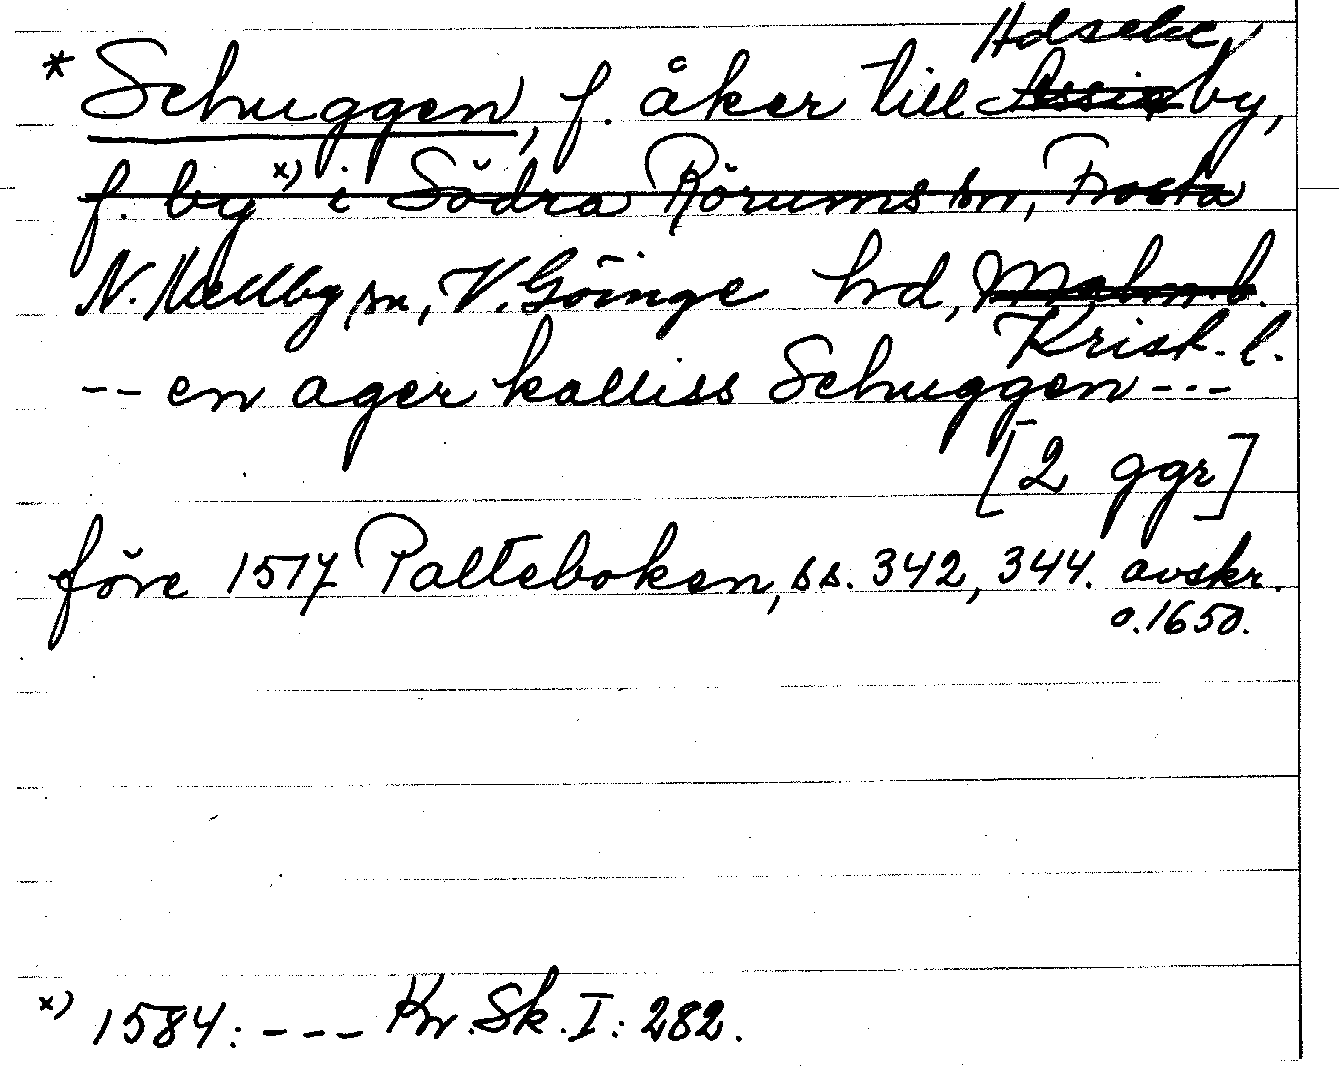 * Schuggen, f. åker till Adseke by,
f. by x) i Södra Rörums sn, Frosta
N. Mellby sn, V. Göinge hd, Malm. l.
Krist. l.
-- en ager kalliss Schuggen ---
[2 ggr]
före 1517 Palteboken, ss. 342, 344. avskr.
o. 1650.
x) 1584: --- Kr. Sk. I: 282.